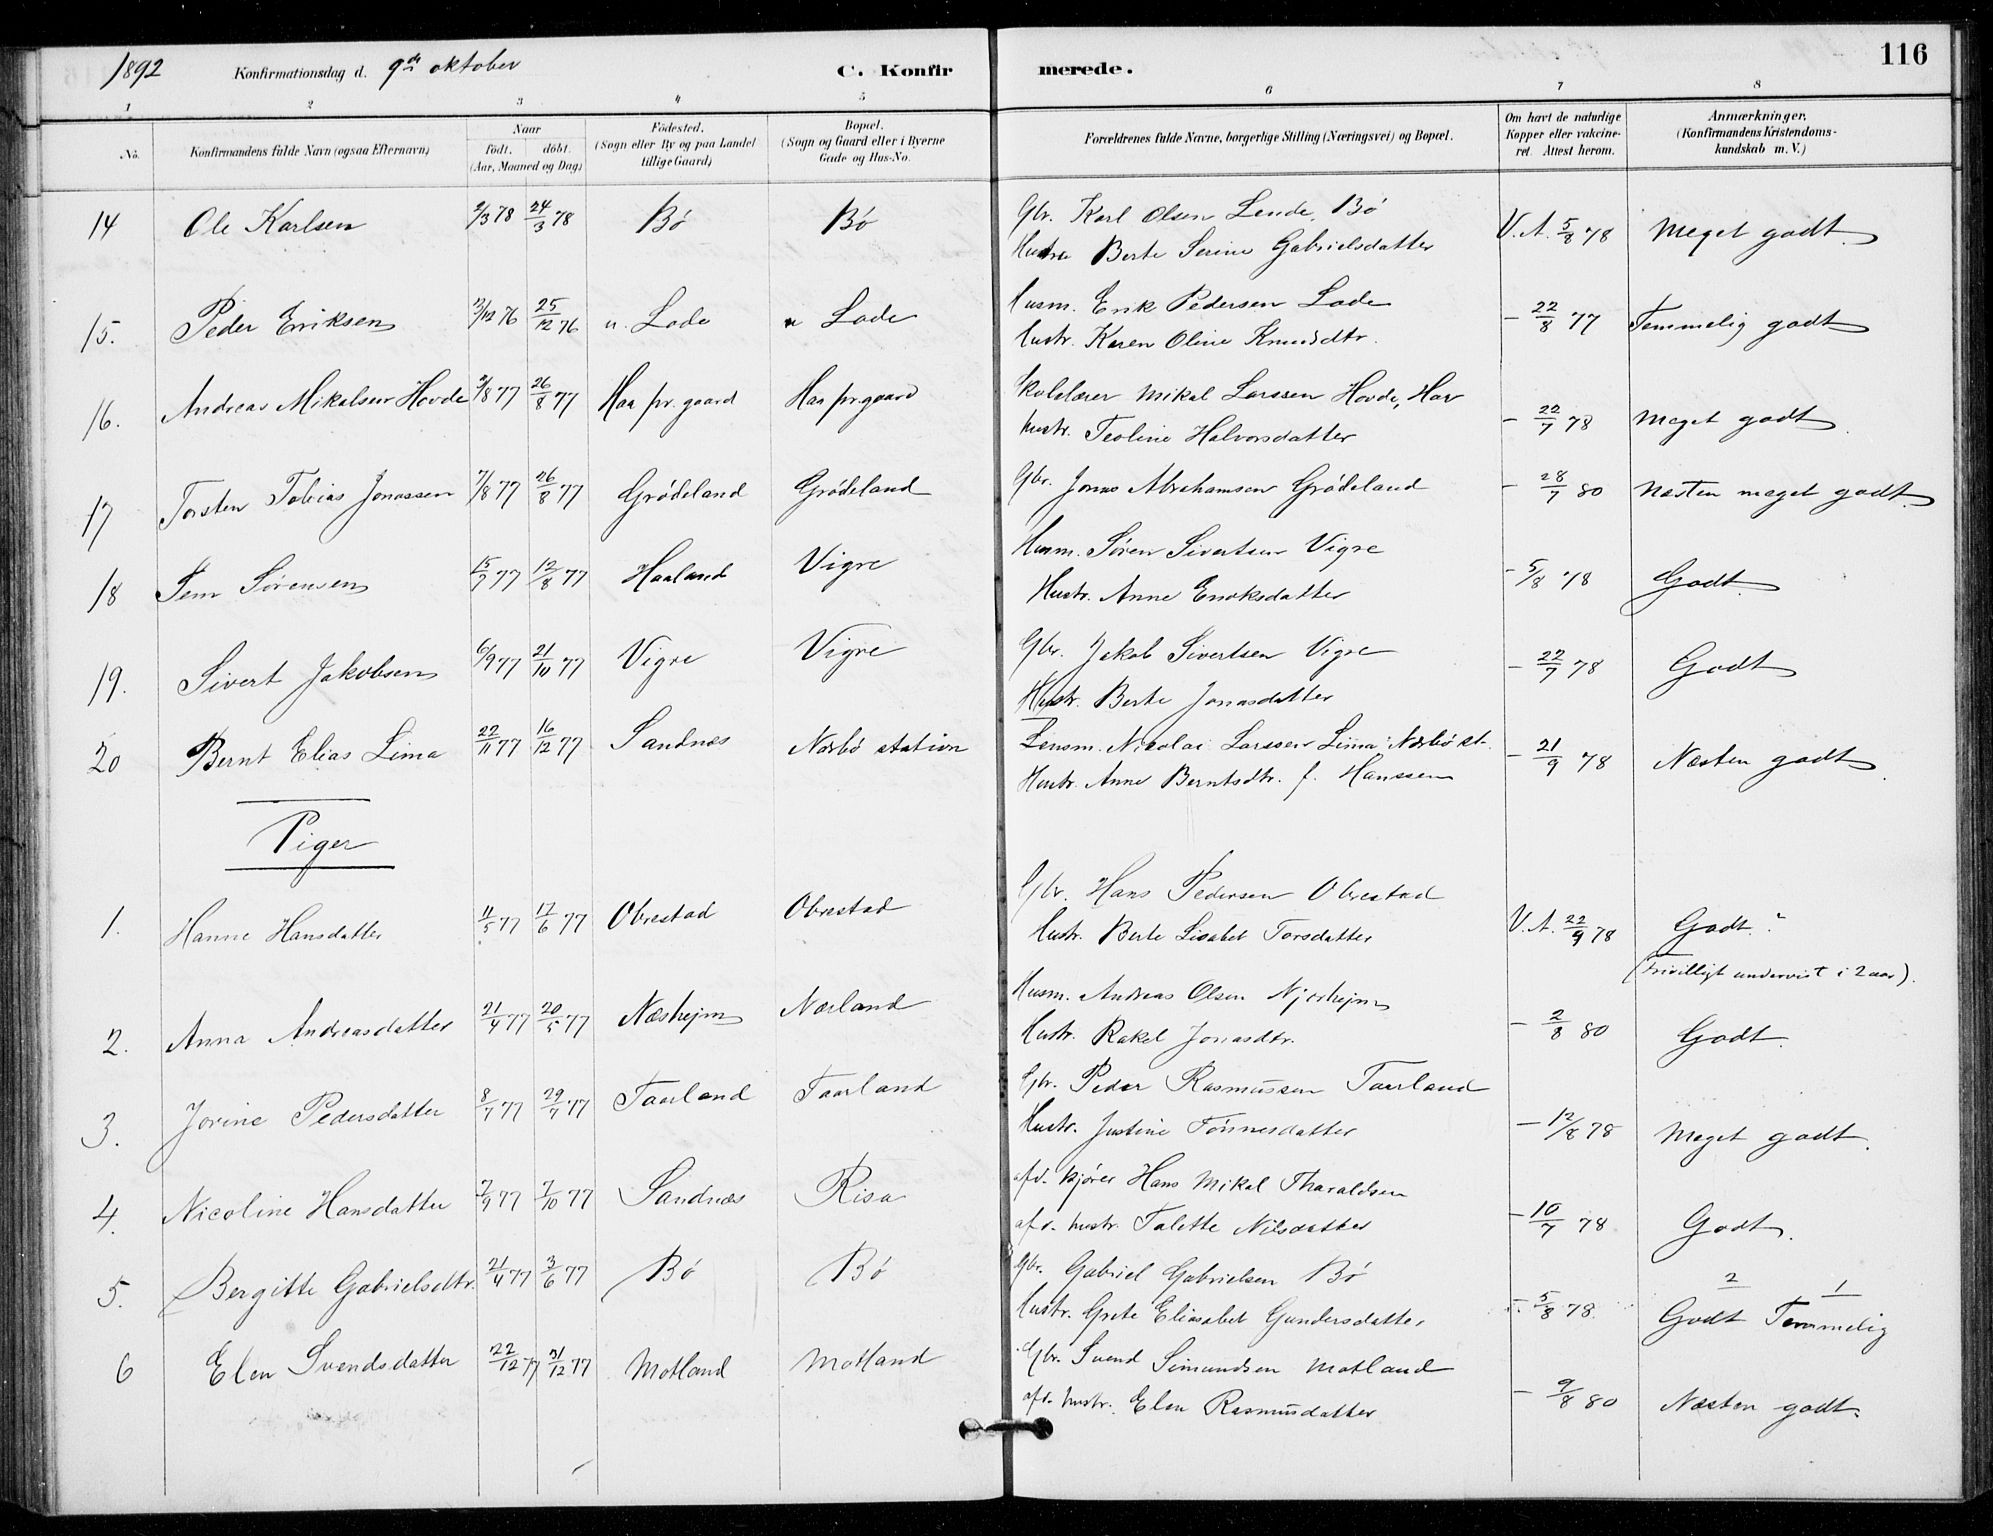 1892 Konfirmationsdag d. 9de oktober C. Konfirmerede. 116
1 2 3 4 5 6 7 8
No. Konfirmandens fulde Navn (ogsaa Efternavn) Naar født. døbt. (Aar, Maaned og Dag) Fødested. (Sogn eller By og paa Landet tillige Gaard) Bopæl. (Sogn og Gaard eller i Byerne Gade og Hus-No. Forældrenes fulde Navne, borgerlige Stilling (Næringsvei) og Bopæl. Om havt de naturlige Kopper eller vakcineret. Attest herom. Anmærkninger. (Konfirmandens Kristendomskundskab m. V.)
14 Ole Karlsen 2/3 78 24/3 78 Bø Bø Gbr. Karl Olsen Lende, Bø V.A. 5/8 78 Meget godt
Hustru Berte Serine Gabrielsdatter
15. Peder Eriksen /12 76 25/12 76 u. Lode u Lode Husm. Erik Pedersen Lode - 22/8 77 Temmelig godt
Hustr. Karen Oline Knudsdtr.
16. Andreas Mikalsen Hovde /8 77 26/8 77 Haa pr.gaard Haa pr.gaard Skolelærer Mikal Larssen Hovde, Haa - 22/7 78 Meget godt
hustr. Teoline Halvorsdatter
17 Torsten Tobias Jonassen 7/8 77 26/8 77 Grødeland Grødeland Gbr. Jonas Abrahamsen Grødeland - 28/7 80 Næsten meget godt.
18 Sem Sørensen 15/7 77 12/8 77 Haaland Vigre Husm. Søren Sivertsen Vigre - 5/8 78 Godt.
Hustr. Anne Enoksdatter
19. Sivert Jakobsen 6/9 77 21/10 77 Vigre Vigre Gbr. Jakob Sivertsen Vigre - 22/7 78 Godt
Hustr. Berte Jonasdatter
20 Bernt Elias Lima 22/11 77 16/12 77 Sandnæs Nærbø station Lensm. Nicolai Larssen Lima Nærbø st. - 21/9 78 Næsten godt
Hustr. Anne Berntsdtr. f. Hanssen
Piger
1. Hanne Hansdatter 11/5 77 17/6 77 Obrestad Obrestad Gbr. Hans Pedersen Obrestad V.A. 22/9 78 Godt.
Hustr. Berte Lisabet Torsdatter (Frivilligt undervist i 2 aar).
2. Anna Andreasdatter 21/4 77 20/5 77 Næshejm Nærland Husm. Andreas Olsen Njærhejm - 2/8 80 Godt.
Hustr. Rakel Jonasdtr.
3. Jorine Pedersdatter 8/7 77 29/7 77 Taarland Taarland Gbr. Peder Rasmussen Taarland - 12/8 78 Meget godt.
Hustr. Justine Tønnesdatter
4. Nicoline Hansdatter 7/9 77 7/10 77 Sandnæs Risa afd. kjører Hans Mikal Tharaldsen - 10/7 78 Godt.
afd. hustr. Talette Nilsdatter
5. Bergitte Gabrielsdtr. 21/4 77 3/6 77 Bø Bø Gbr. Gabriel Gabrielsen Bø - 5/8 78 2 Godt 1 Temmelig
Hustr. Grete Eliasabet Gundersdatter
6 Elen Svendsdatter 22/12 77 31/12 77 Motland Motland Gbr. Svend Simundsen Motland - 9/8 80 Næsten godt.
afd. hustr. Elen Rasmusdatter